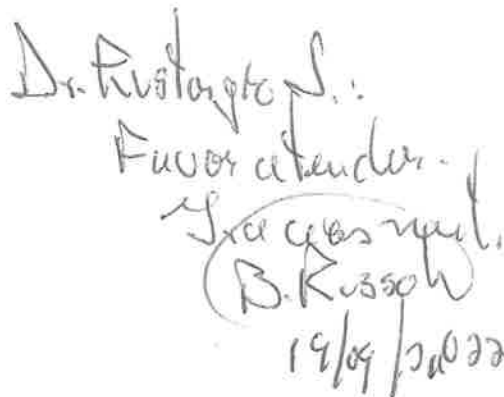 Dr. Rustorgto S.:
Favor atender.
Gracias mil.
B. Russo
19/09/2022